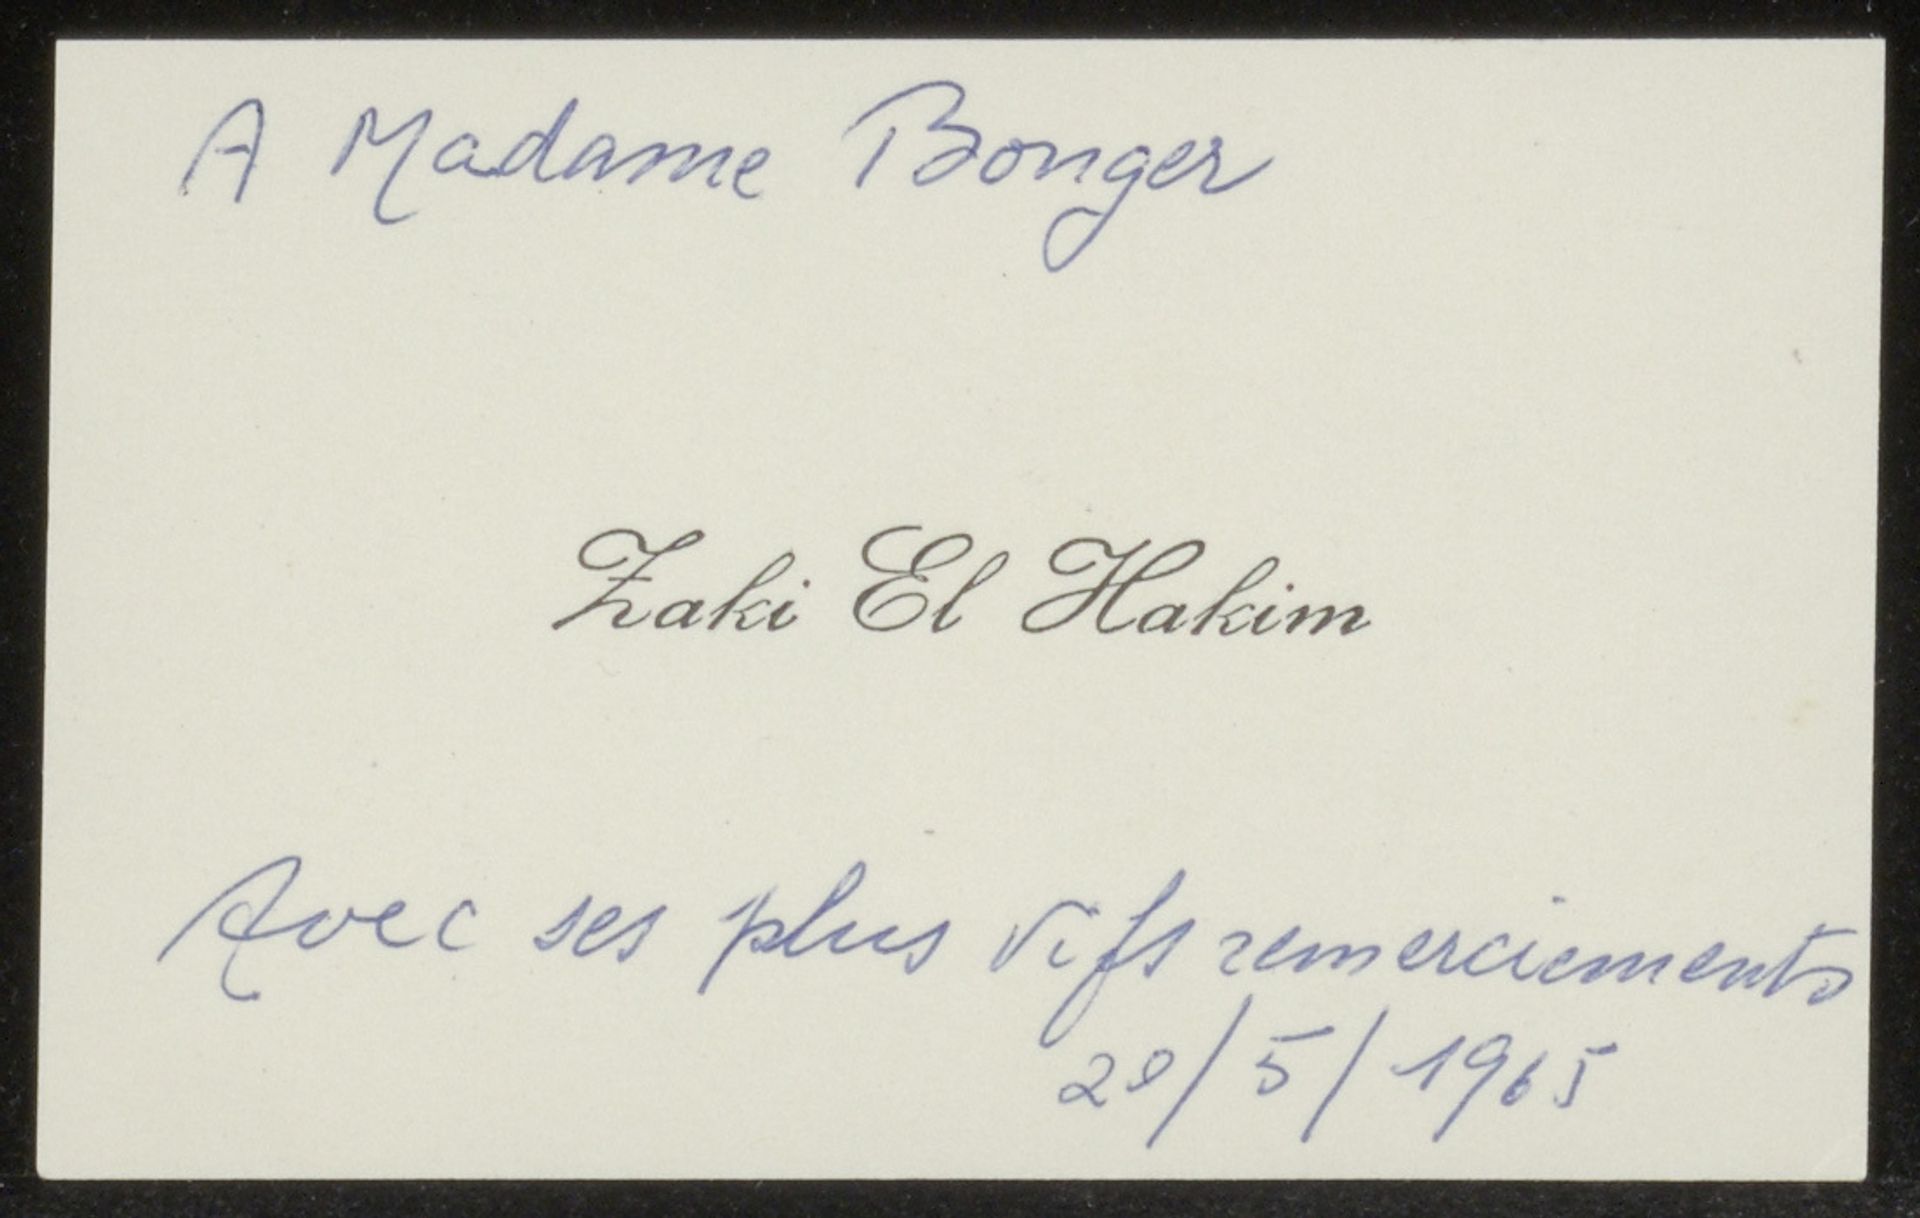 A Madame Bonger
Zaki El Hakim
Avec ses plus vifs remerciements
20/5/1965